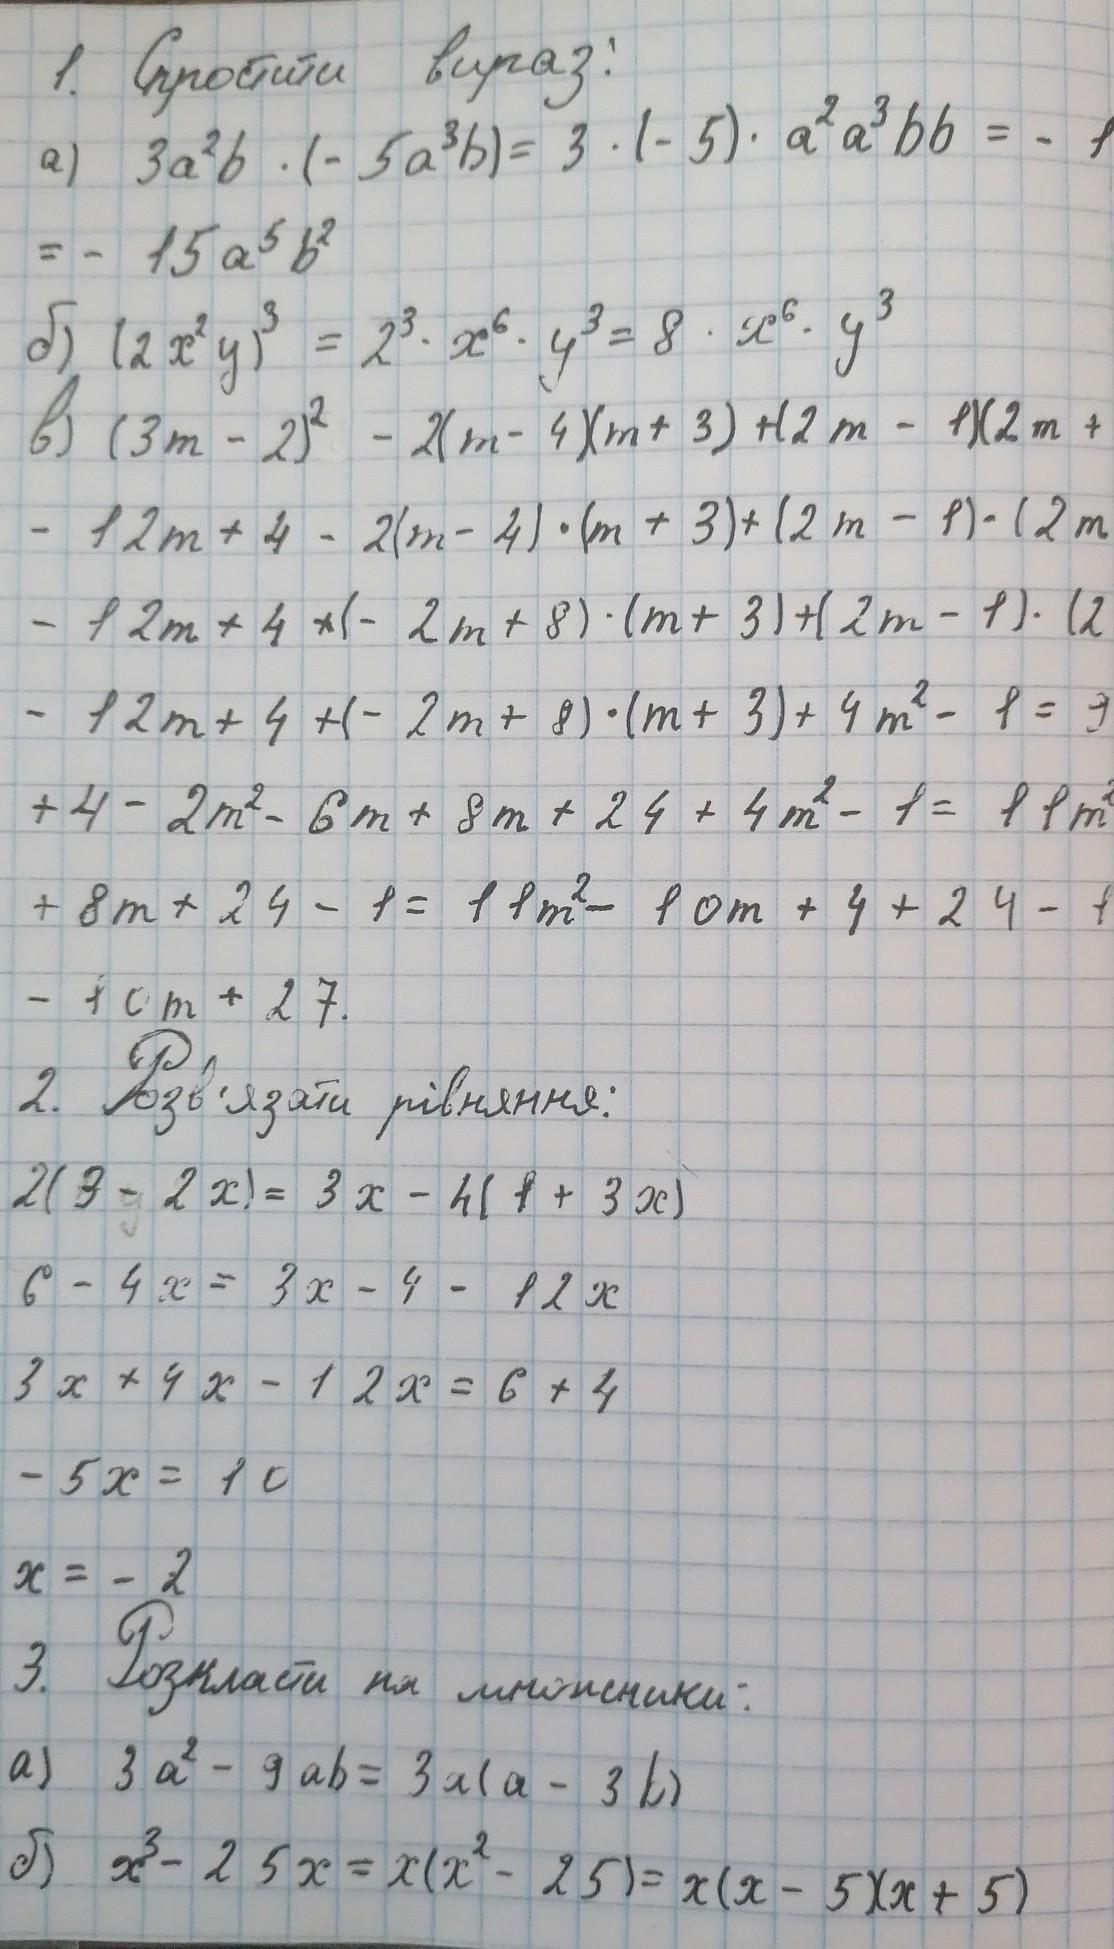 1. Спростити вираз:
а) 3a²b · (- 5a³b) = 3 · (- 5) · a²a³bb = - 1
= - 15a⁵b²
б) (2x²y)³ = 2³ · x⁶ · y³ = 8 · x⁶ · y³
в) (3m - 2)² - 2(m - 4)(m + 3) + (2m - 1)(2m +
- 12m + 4 - 2(m - 4) · (m + 3) + (2m - 1) · (2m
- 12m + 4 + (- 2m + 8) · (m + 3) + (2m - 1) · (2
- 12m + 4 + (- 2m + 8) · (m + 3) + 4m² - 1 = 9
+ 4 - 2m² - 6m + 8m + 24 + 4m² - 1 = 11m²
+ 8m + 24 - 1 = 11m² - 10m + 4 + 24 - 1
- 10m + 27.
2. Розв'язати рівняння:
2(3 - 2x) = 3x - 4(1 + 3x)
6 - 4x = 3x - 4 - 12x
3x + 4x - 12x = 6 + 4
- 5x = 10
x = - 2
3. Розкласти на множники:
а) 3a² - 9ab = 3a(a - 3b)
б) x³ - 25x = x(x² - 25) = x(x - 5)(x + 5)